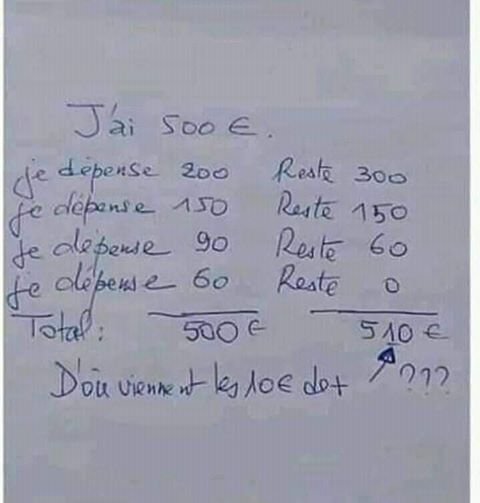 J'ai 500 €.
je dépense 200 Reste 300
je dépense 150 Reste 150
je dépense 90 Reste 60
je dépense 60 Reste 0
Total: 500 € 510 €
D'où viennent les 10€ de + ???